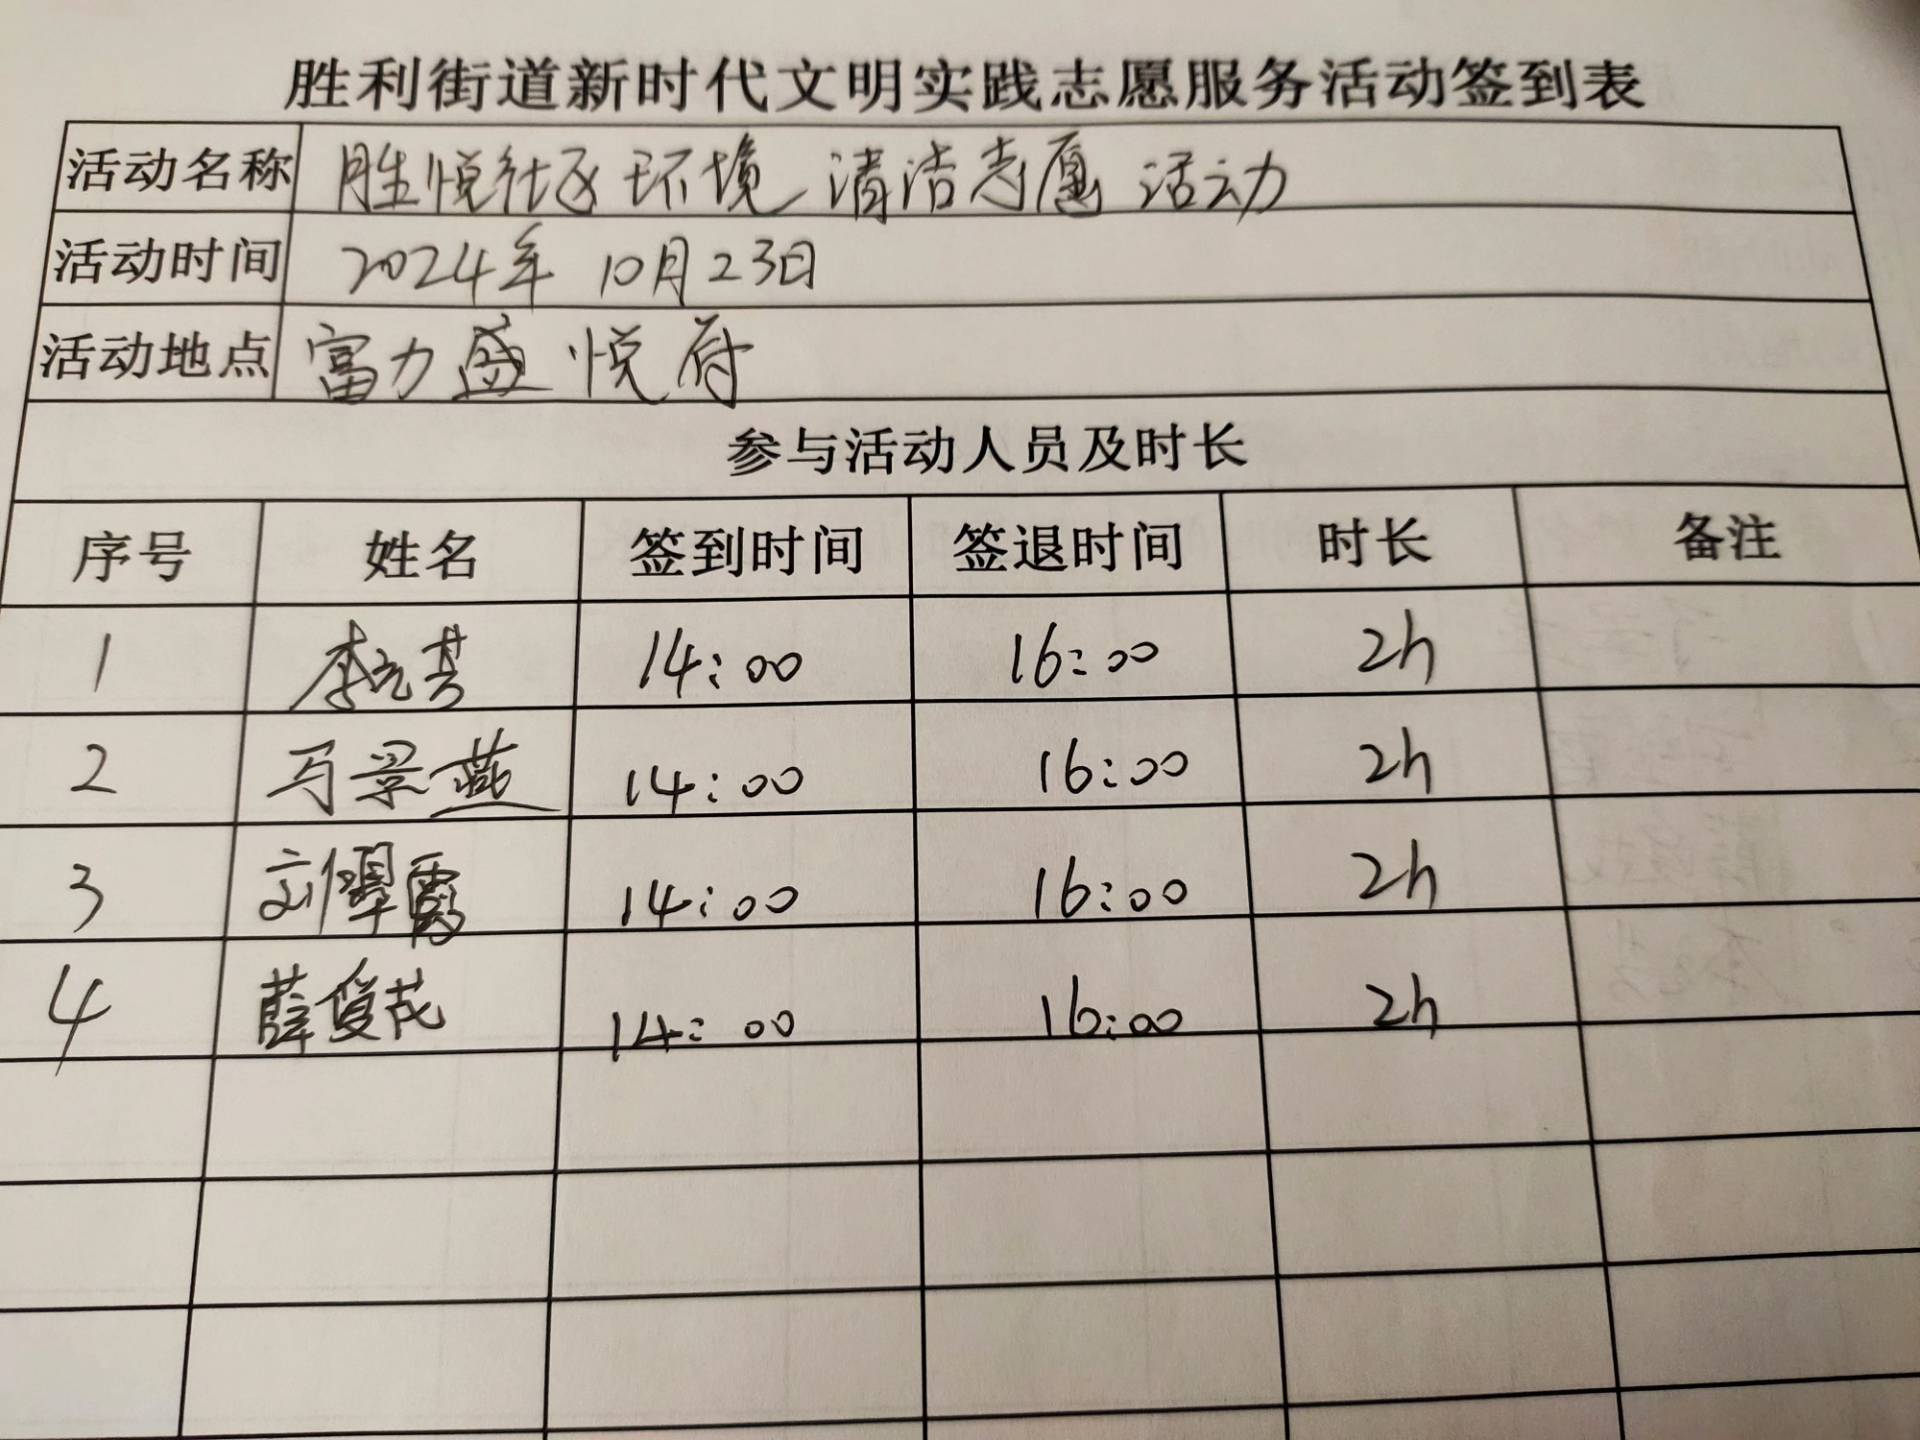 胜利街道新时代文明实践志愿服务活动签到表
活动名称 胜悦社区环境清洁志愿活动
活动时间 2024年10月23日
活动地点 富力盛悦府
参与活动人员及时长
序号 姓名 签到时间 签退时间 时长 备注
1 李元芳 14:00 16:00 2h
2 马景燕 14:00 16:00 2h
3 刘翠霞 14:00 16:00 2h
4 薛俊茂 14:00 16:00 2h